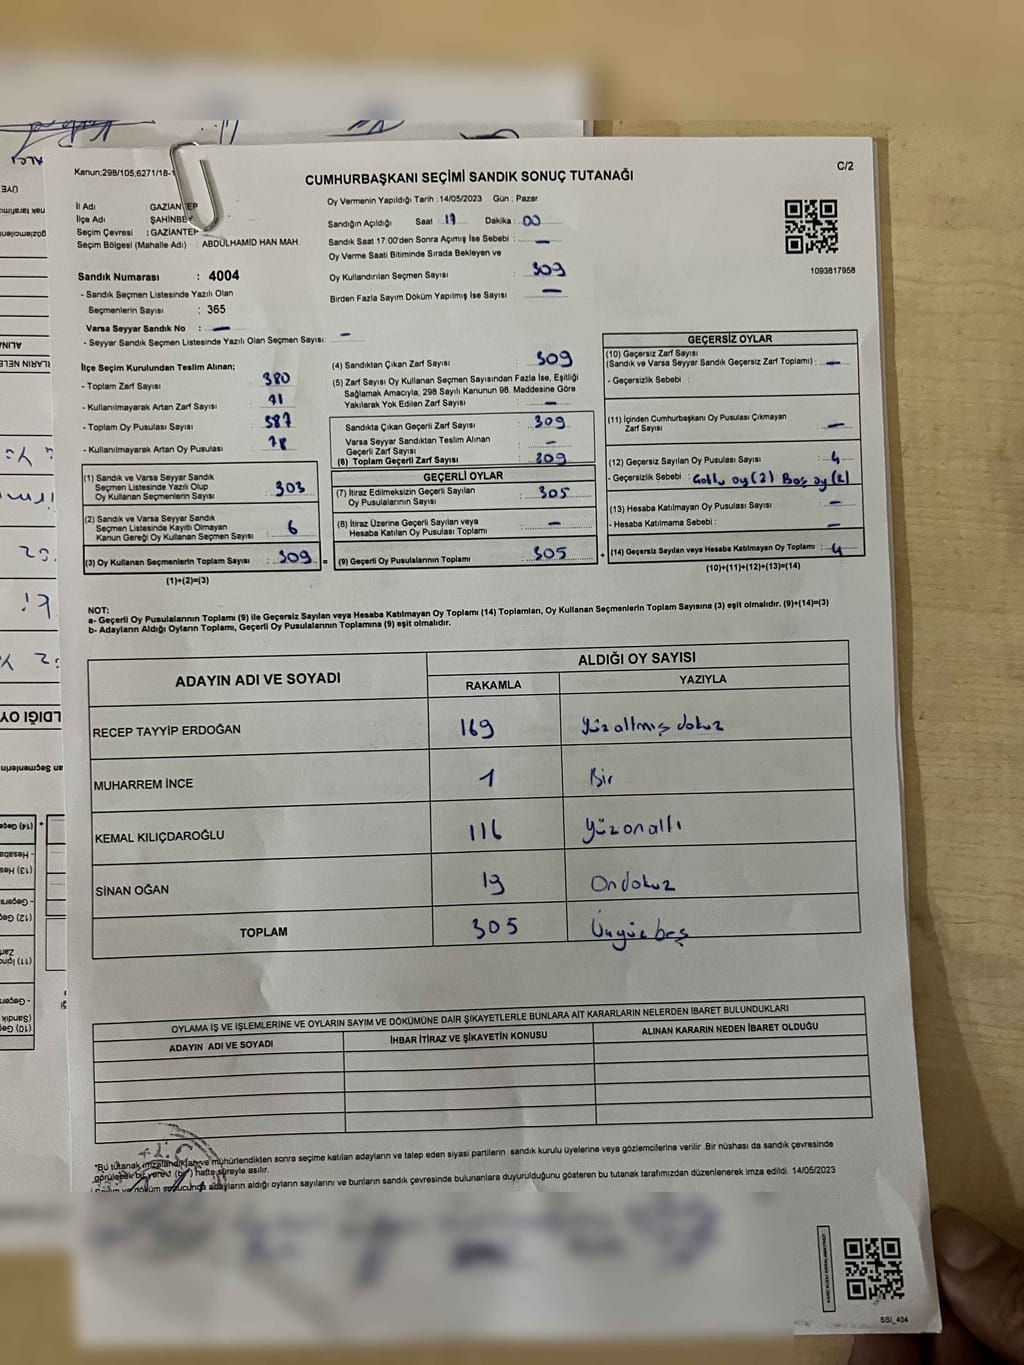 Kanun;298/105,6271/18-
C/2
CUMHURBAŞKANI SEÇİMİ SANDIK SONUÇ TUTANAĞI
İl Adı : GAZİANTEP
İlçe Adı : ŞAHİNBEY
Seçim Çevresi : GAZİANTEP
Seçim Bölgesi (Mahalle Adı) : ABDÜLHAMİD HAN MAH.
Sandık Numarası : 4004
- Sandık Seçmen Listesinde Yazılı Olan
Seçmenlerin Sayısı : 365
Varsa Seyyar Sandık No : —
- Seyyar Sandık Seçmen Listesinde Yazılı Olan Seçmen Sayısı: —
Oy Vermenin Yapıldığı Tarih : 14/05/2023 Gün : Pazar
Sandığın Açıldığı Saat : 17 Dakika : 00
Sandık Saat 17:00'den Sonra Açımış İse Sebebi : —
Oy Verme Saati Bitiminde Sırada Bekleyen ve
Oy Kullandırılan Seçmen Sayısı : 309
Birden Fazla Sayım Döküm Yapılmış İse Sayısı : —
1093817958
İlçe Seçim Kurulundan Teslim Alınan;
- Toplam Zarf Sayısı : 380
- Kullanılmayarak Artan Zarf Sayısı : 71
- Toplam Oy Pusulası Sayısı : 387
- Kullanılmayarak Artan Oy Pusulası : 78
(1) Sandık ve Varsa Seyyar Sandık
Seçmen Listesinde Yazılı Olup
Oy Kullanan Seçmenlerin Sayısı : 303
(2) Sandık ve Varsa Seyyar Sandık
Seçmen Listesinde Kayıtlı Olmayan
Kanun Gereği Oy Kullanan Seçmen Sayısı : 6
(3) Oy Kullanan Seçmenlerin Toplam Sayısı : 309 =
(1)+(2)=(3)
(4) Sandıktan Çıkan Zarf Sayısı : 309
(5) Zarf Sayısı Oy Kullanan Seçmen Sayısından Fazla İse, Eşitliği
Sağlamak Amacıyla, 298 Sayılı Kanunun 98. Maddesine Göre
Yakılarak Yok Edilen Zarf Sayısı : —
Sandıkta Çıkan Geçerli Zarf Sayısı : 309
Varsa Seyyar Sandıktan Teslim Alınan
Geçerli Zarf Sayısı : —
(6) Toplam Geçerli Zarf Sayısı : 309
GEÇERLİ OYLAR
(7) İtiraz Edilmeksizin Geçerli Sayılan
Oy Pusulalarının Sayısı : 305
(8) İtiraz Üzerine Geçerli Sayılan veya
Hesaba Katılan Oy Pusulası Toplamı : —
(9) Geçerli Oy Pusulalarının Toplamı : 305 +
GEÇERSİZ OYLAR
(10) Geçersiz Zarf Sayısı
(Sandık ve Varsa Seyyar Sandık Geçersiz Zarf Toplamı) : —
- Geçersizlik Sebebi :
(11) İçinden Cumhurbaşkanı Oy Pusulası Çıkmayan
Zarf Sayısı : —
(12) Geçersiz Sayılan Oy Pusulası Sayısı : 4
- Geçersizlik Sebebi : oy (2) Boş oy (2)
(13) Hesaba Katılmayan Oy Pusulası Sayısı : —
- Hesaba Katılmama Sebebi : —
(14) Geçersiz Sayılan veya Hesaba Katılmayan Oy Toplamı : 4
(10)+(11)+(12)+(13)=(14)
NOT:
a- Geçerli Oy Pusulalarının Toplamı (9) ile Geçersiz Sayılan veya Hesaba Katılmayan Oy Toplamı (14) Toplamları, Oy Kullanan Seçmenlerin Toplam Sayısına (3) eşit olmalıdır. (9)+(14)=(3)
b- Adayların Aldığı Oyların Toplamı, Geçerli Oy Pusulalarının Toplamına (9) eşit olmalıdır.
ADAYIN ADI VE SOYADI
ALDIĞI OY SAYISI
RAKAMLA YAZIYLA
RECEP TAYYİP ERDOĞAN 169 Yüzaltmış dokuz
MUHARREM İNCE 1 Bir
KEMAL KILIÇDAROĞLU 116 Yüzonaltı
SİNAN OĞAN 19 Ondokuz
TOPLAM 305 Üçyüzbeş
OYLAMA İŞ VE İŞLEMLERİNE VE OYLARIN SAYIM VE DÖKÜMÜNE DAİR ŞİKAYETLERLE BUNLARA AİT KARARLARIN NELERDEN İBARET BULUNDUKLARI
ADAYIN ADI VE SOYADI İHBAR İTİRAZ VE ŞİKAYETİN KONUSU ALINAN KARARIN NEDEN İBARET OLDUĞU
"Bu tutanak imzalandıktan ve mühürlendikten sonra seçime katılan adayların ve talep eden siyasi partilerin sandık kurulu üyelerine veya gözlemcilerine verilir. Bir nüshası da sandık çevresinde
görülecek bir yere (bir) hafta süreyle asılır.
döküm sonucunda adayların aldığı oyların sayılarını ve bunların sandık çevresinde bulunanlara duyurulduğunu gösteren bu tutanak tarafımızdan düzenlenerek imza edildi. 14/05/2023
SSI_404